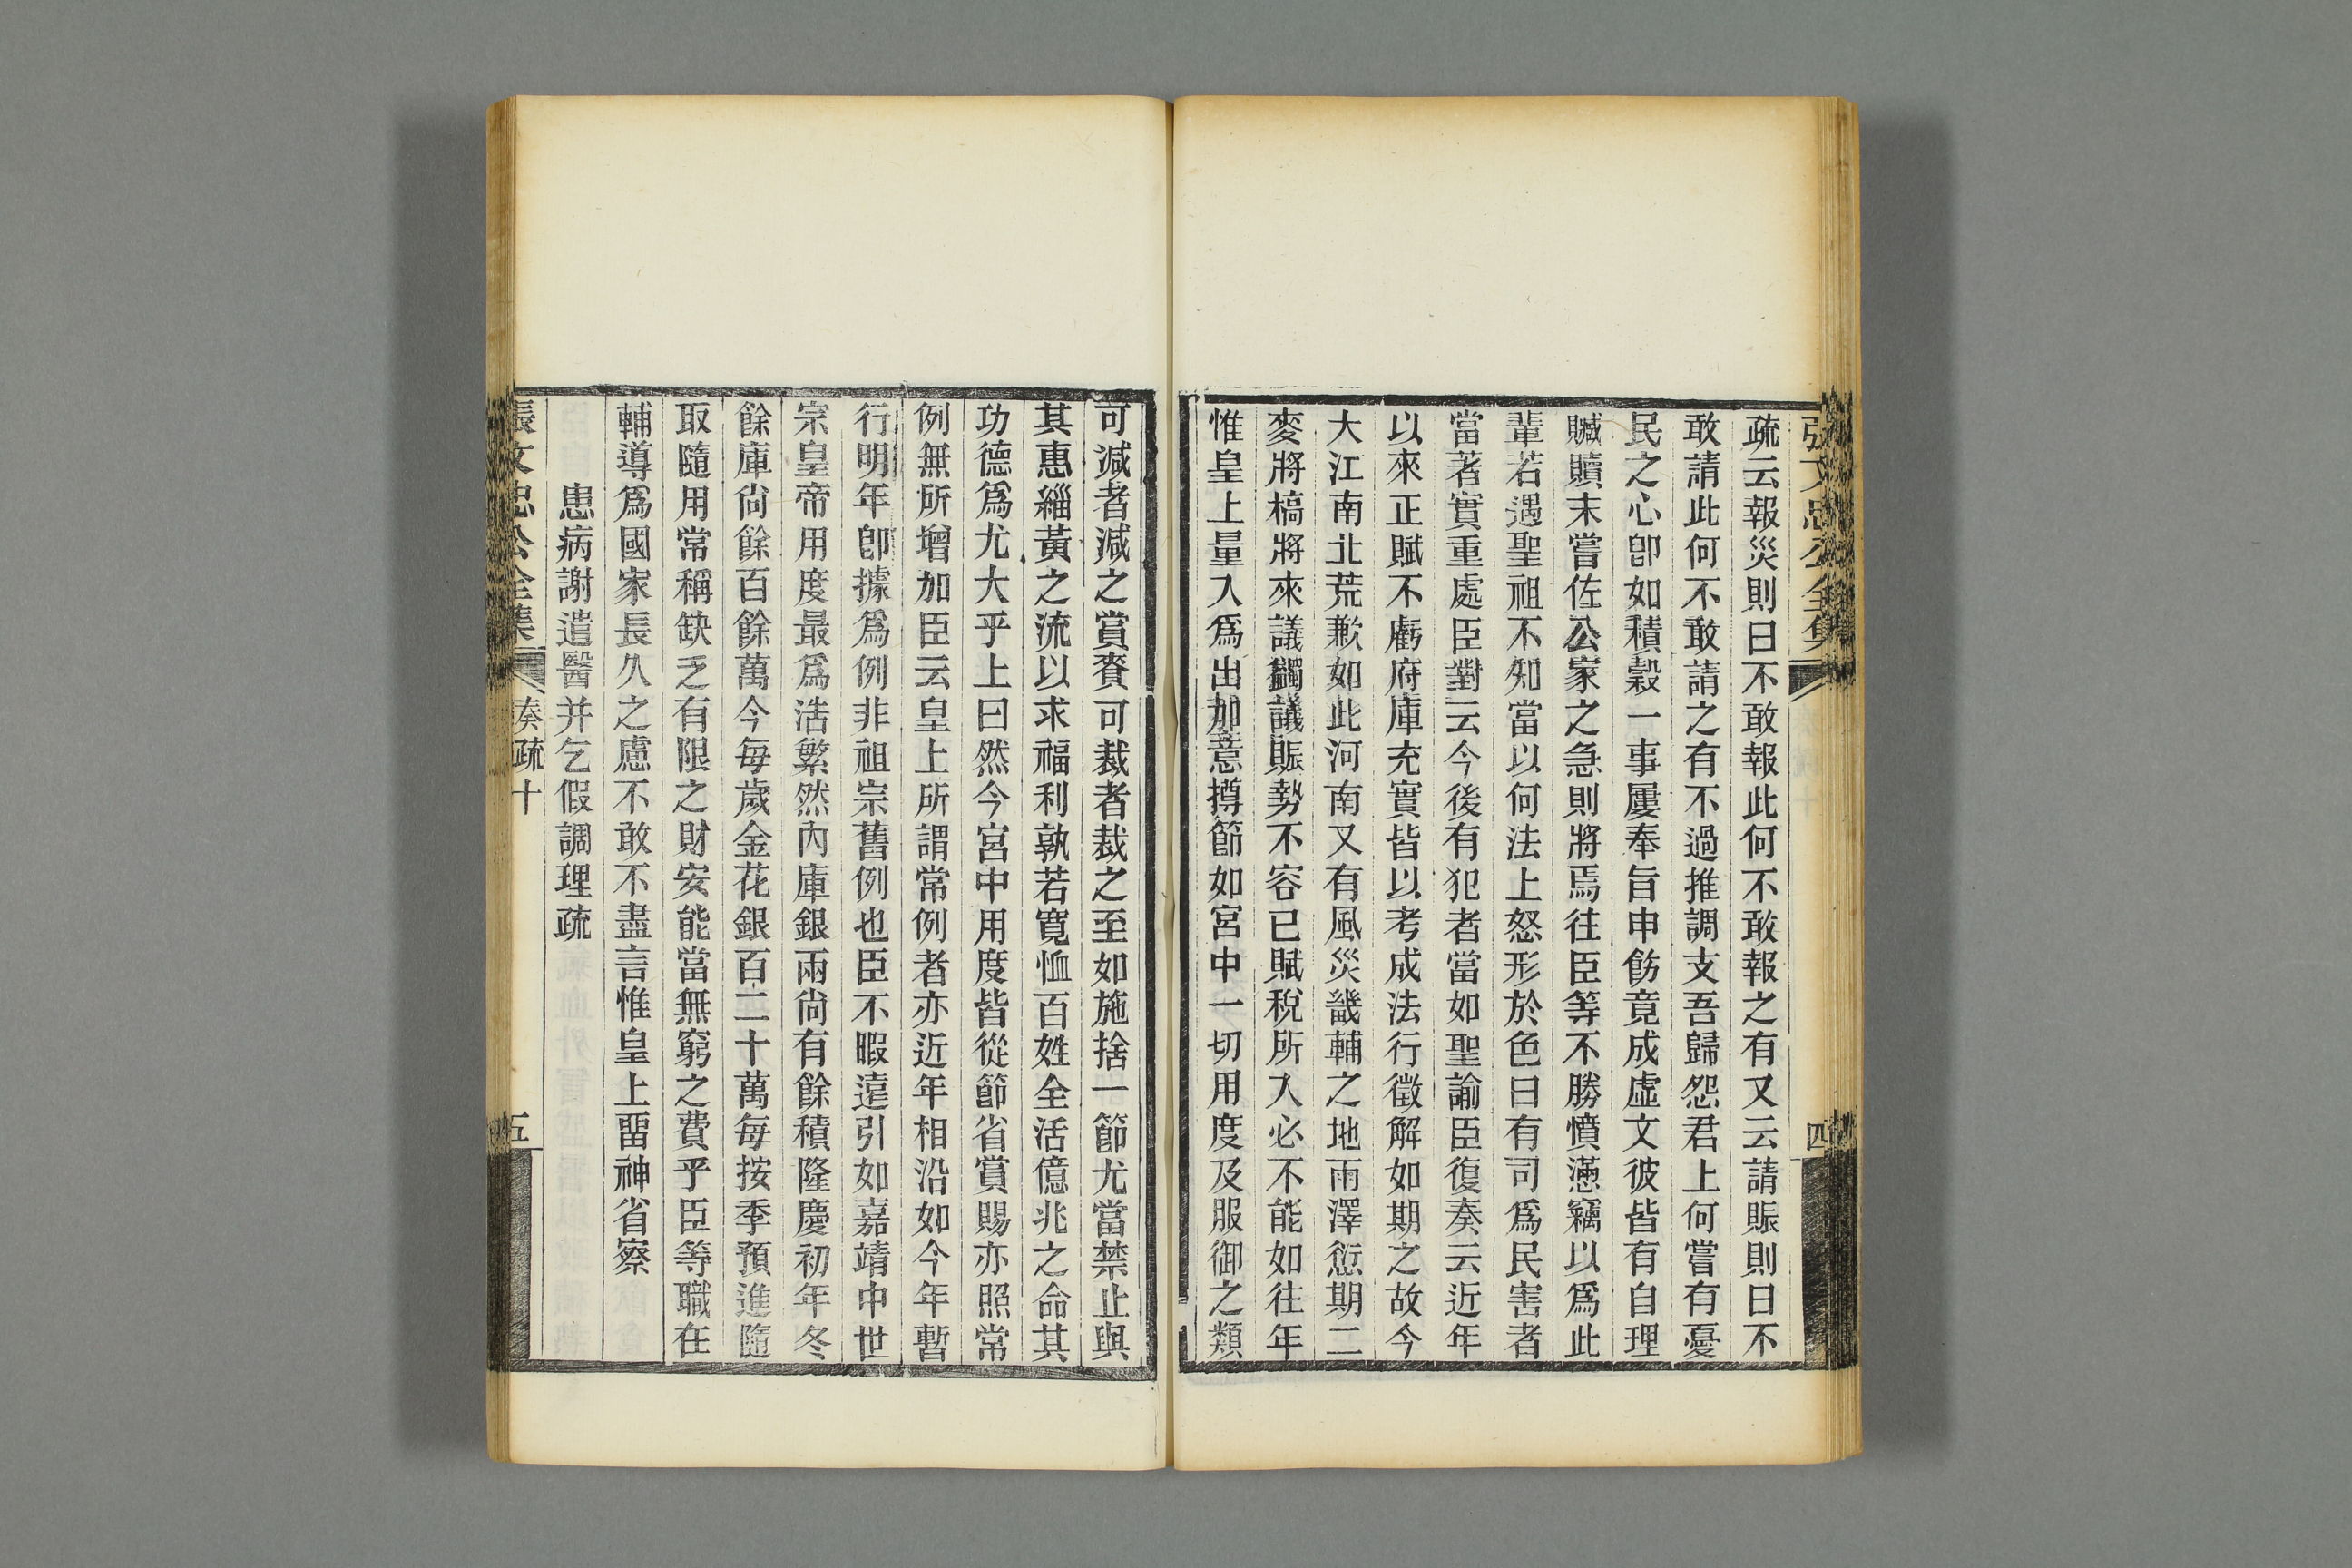 張文忠公全集
四
疏云報災則曰不敢報此何不敢報之有又云請賑則曰不
敢請此何不敢請之有不過推調支吾歸怨君上何嘗有憂
民之心卽如積穀一事屢奉旨申飭竟成虛文彼皆有自理
贓贖未嘗佐公家之急則將焉往臣等不勝憤懣竊以爲此
輩若遇聖祖不知當以何法上怒形於色曰有司爲民害者
當著實重處臣對云今後有犯者當如聖諭臣復奏云近年
以來正賦不虧府庫充實皆以考成法行徵解如期之故今
大江南北荒歉如此河南又有風災畿輔之地雨澤愆期二
麥將槁將來議蠲議賑勢不容已賦稅所入必不能如往年
惟皇上量入爲出加意撙節如宮中一切用度及服御之類
可減者減之賞賚可裁者裁之至如施捨一節尤當禁止與
其惠緇黃之流以求福利孰若寬恤百姓全活億兆之命其
功德爲尤大乎上曰然今宮中用度皆從節省賞賜亦照常
例無所增加臣云皇上所謂常例者亦近年相沿如今年暫
行明年卽據爲例非祖宗舊例也臣不暇遠引如嘉靖中世
宗皇帝用度最爲浩繁然內庫銀兩尙有餘積隆慶初年冬
餘庫尙餘百餘萬今每歲金花銀百二十萬每按季預進隨
取隨用常稱缺乏有限之財安能當無窮之費乎臣等職在
輔導爲國家長久之慮不敢不盡言惟皇上畱神省察
患病謝遣醫并乞假調理疏
張文忠公全集
奏疏十
五